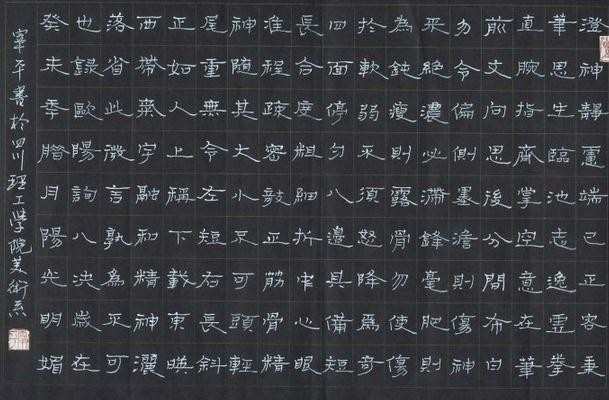 澄神靜慮端己正容秉
筆思生臨池志逸虛拳
直腕指齊掌空意在筆
前文向思後分間布白
勿令偏側墨澹則傷神
采絕濃必滯鋒毫肥則
為鈍瘦則露骨勿使傷
於軟弱不須怒降為奇
四面停勻八邊具備短
長合度粗細折中心眼
准程疎密敧正筋骨精
神隨其大小不可頭輕
尾重無令左短右長斜
正如人上稱下載東映
西帶氣宇融和精神灑
落省此微言孰為不可
也錄歐陽詢八決歲在
癸未季臘月陽光明媚
平書於四川理工學院美術系